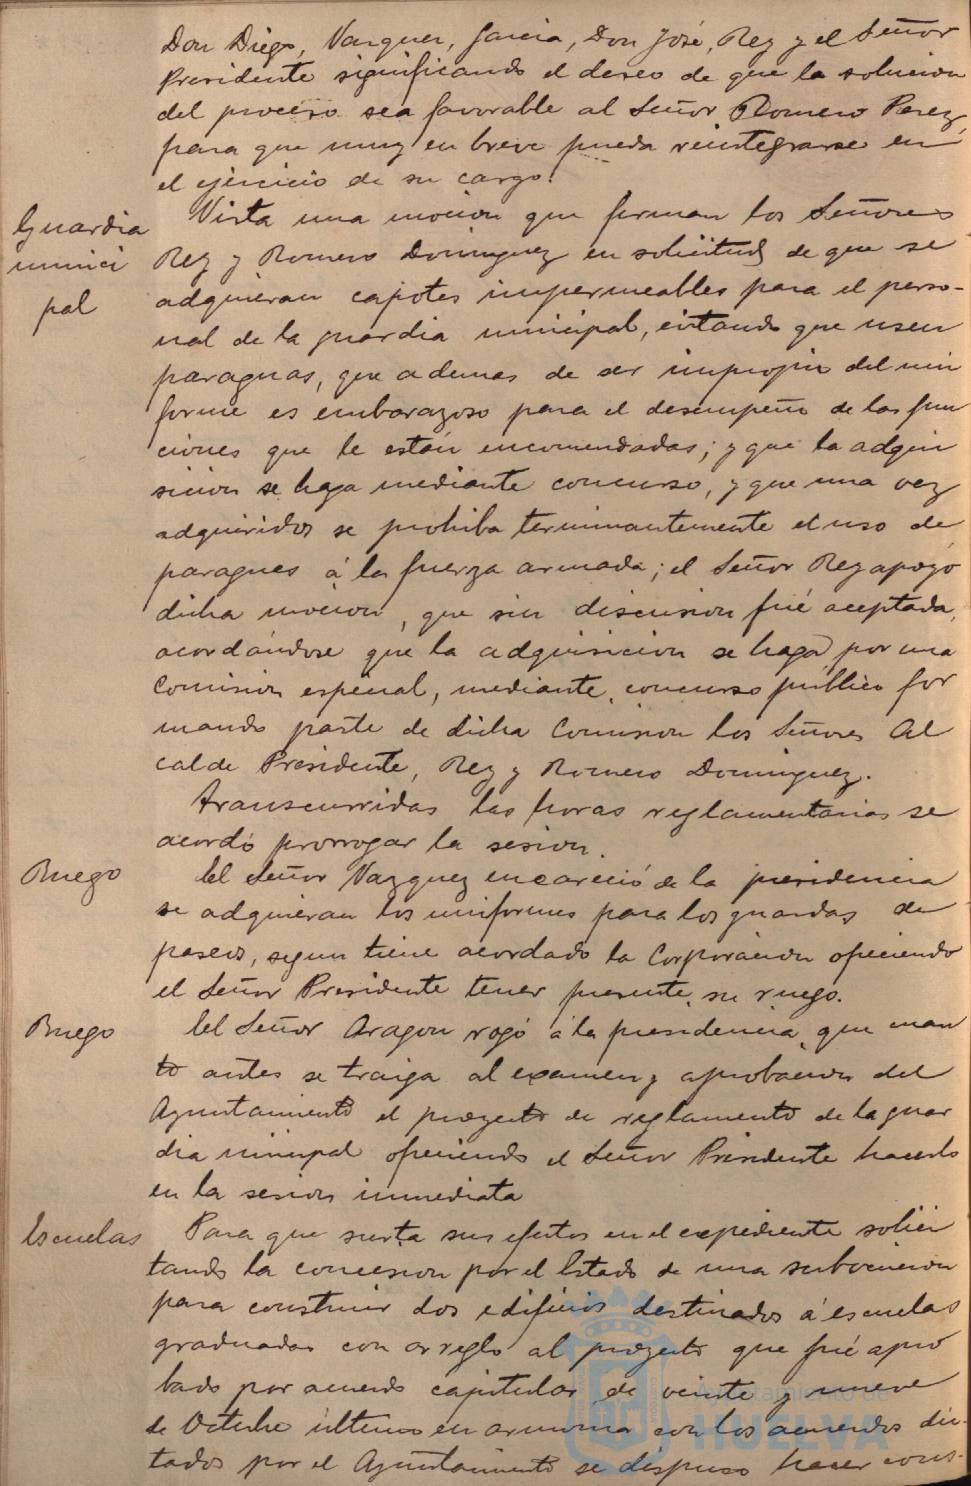 Don Diego, Vazquez, Garcia, Don José, Rey y el Señor
Presidente significando el deseo de que la solucion
del proceso sea favorable al Señor Romero Perez,
para que muy en breve pueda reintegrarse en
el ejercicio de su cargo.
Guardia
munici
pal
Vista una mocion que firman los Señores
Rey y Romero Dominguez en solicitud de que se
adquieran capotes impermeables para el perso-
nal de la guardia municipal, evitando que usen
paraguas, que ademas de ser impropio del uni
forme es embarazoso para el desempeño de las fun
ciones que le están encomendadas; y que la adqui
sicion se haga mediante concurso, y que una vez
adquiridos se prohiba terminantemente el uso de
paragues á la fuerza armada; el Señor Rey apoyó
dicha mocion, que sin discusion fué aceptada,
acordándose que la adquisicion se haga por una
Comision especial, mediante concurso público for
mando parte de dicha Comision los Señores Al
calde Presidente, Rey y Romero Dominguez.
Transcurridas las horas reglamentarias se
acordó prorrogar la sesion.
Ruego
El Señor Vazquez encareció de la presidencia
se adquieran los uniformes para los guardas de
paseos, segun tiene acordado la Corporacion ofreciendo
el Señor Presidente tener presente su ruego.
Ruego
El Señor Aragon rogó á la presidencia que cuan
to antes se traiga al examen y aprobacion del
Ayuntamiento el proyecto de reglamento de la guar
dia municipal ofreciendo el Señor Presidente hacerlo
en la sesion inmediata
Escuelas
Para que surta sus efectos en el expediente solici
tando la concesion por el Estado de una subvencion
para construir dos edificios destinados á escuelas
graduadas con arreglo al proyecto que fué apro
bado por acuerdo capitular de veinte y nueve
de Octubre último en armonia con los acuerdos dic-
tados por el Ayuntamiento se dispuso hacer cons-
Ayuntamiento de
HUELVA